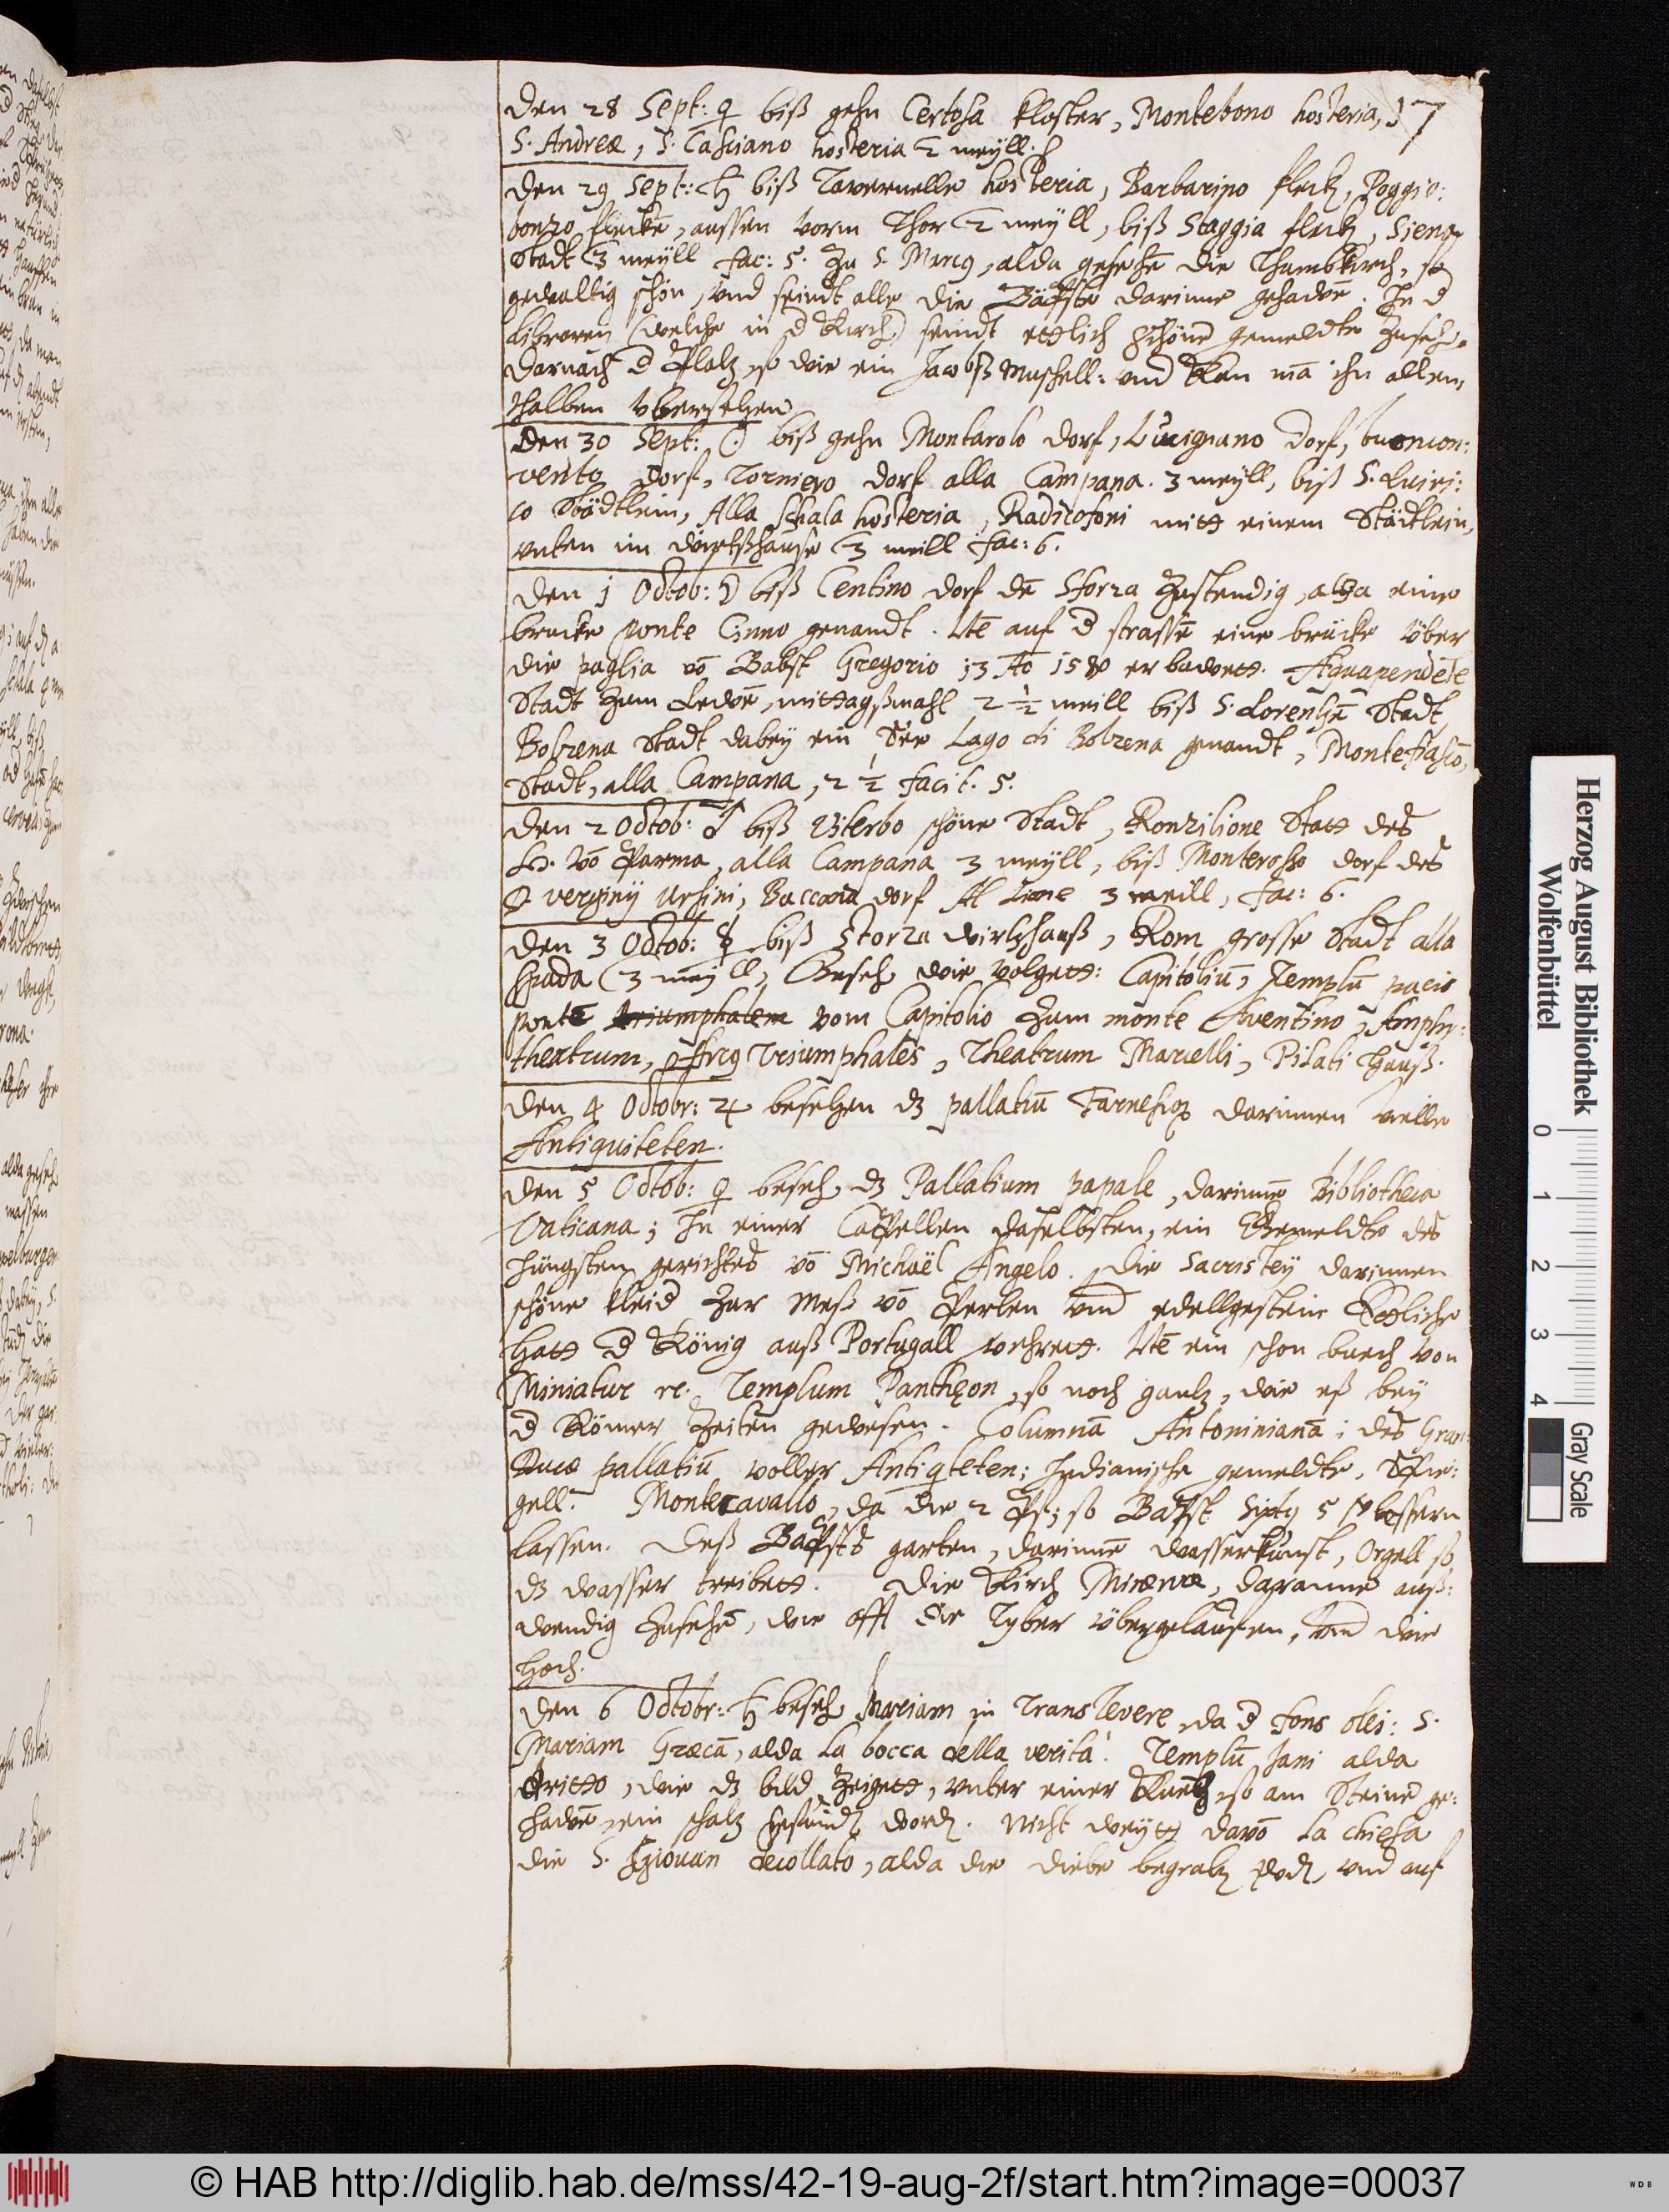 17
Den 28 Sept: ♀ biß gehn Certosa kloster, Montebono hosteria,
S. Andreæ, S. Casciano hosteria 2 meyll.
Den 29 Sept: ♄ biß Tavernelle hosteria, Barbarino fleck, Poggio:
bonzo flecke, aussen vorm Thor 2 meyll, biß Staggia fleck, Siena
Stadt 3 meyll fac: 5. Zu S. Marcg, alda gesehē die Thumbkirch, so
gewaltig schön, vnd seindt alle die Bäpste darinne gehawē. In d
librareÿ (welche in d Kirch) seindt ettlich schöne gemeldte zusehē.
Darnach d Platz so wie ein Jacobß Muschell: vnd kan mā ihn allen,
thalben vbersehen
Den 30 Sept: ☉ biß gehn Montarolo dorf, Lucignano dorf, buoncon:
vento dorf, Torniero dorf alla Campana. 3 meyll, biß S. Quiri:
co Städtlein, Alla Scala hosteria, Radicofoni mitt einem Städtlein,
vnten im wirtßhause 3 meill fac: 6.
Den 1 Octob: ☽ biß Centino dorf dē Sforza zustendig, alda eine
brucke ponte Cinno genandt. Itē auf d strassē eine brücke vber
die paglia vō Babst Gregorio 13 Ao 1580 erbawett. Aquapendēte
Stadt zum Lewē, mittagßmahl 2 1/2 meill biß S. Lorentzē Stadt,
Bolzena Stadt dabey ein See Lago di Bolzena genandt, Montefiascō,
Stadt, alla Campana, 2 1/2 facit. 5.
Den 2 Octob: ♂ biß Viterbo schöne Stadt, Ronzilione Statt des
H. vō Parma, alla Campana 3 meyll, biß Monterosso dorf des
D. verginÿ Ursini, Baccana dorf Al Lione 3 meill, fac: 6.
Den 3 Octob: ☿ biß Storza wirtzhauß, Rom grosse Stadt alla
Spada 3 meyll, Geseh wie volgett: Capitoliū, Templū pacis
ponte triumphalem vom Capitolio zum monte Aventino, Amphi:
theatrum, Arcg Triumphales, Theatrum Marcelli, Pilati hauß.
Den 4 Octobr: ♃ besehen dz pallatiū Farnesior darinnen vielle
Antiquiteten.
Den 5 Octob: ♀ beseh dz Pallatium papale, darinnē Bibliotheca
Vaticana; In einer Cappellen daselbsten, ein Gemeldte des
Jüngsten gerichtes vō Michaël Angelo. Die Sacristey darinnen
schöne kleid zur Meß vō Perlen vnd edellgestein Ettliche
hatt d König auß Portugall verehrett. Itē ein schon buech von
Miniatur ec. Templum Pantheon, so noch gantz, wie eß bey
d Römer Zeiten gewesen. Columnā Antoninianā; des Gran
Duca pallatiū voller Antiqteten; Indianische gemeldte, Spie:
gell. Montecavallo, da die 2 Pf; so Bapst Sixtg 5 bessern
lassen. Deß Bapsts garten, darinnē wasserkunst, Orgell so
dz wasser treibett. Die Kirch Minerva, daranne auß:
wendig zusehē, wie offt die Tyber vbergelaufen, vnd wie
hoch.
Den 6 Octobr: ♄ beseh Mariam in Trans Tevere, da d fons olei: S.
Mariam Græcā, alda la bocca della verità. Templū Jani alda
dritto, wie dz bild zeigett, vnter einer so am Steine ge:
hawē, ein schatz gefund word. Nicht weytt davō la chiesa
die S. Giouan decollato, alda die diebe begrabē vnd auf
Herzog August Bibliothek
Wolfenbüttel
0 1 2 3 4
Gray Scale
© HAB http://diglib.hab.de/mss/42-19-aug-2f/start.htm?image=00037
WDB